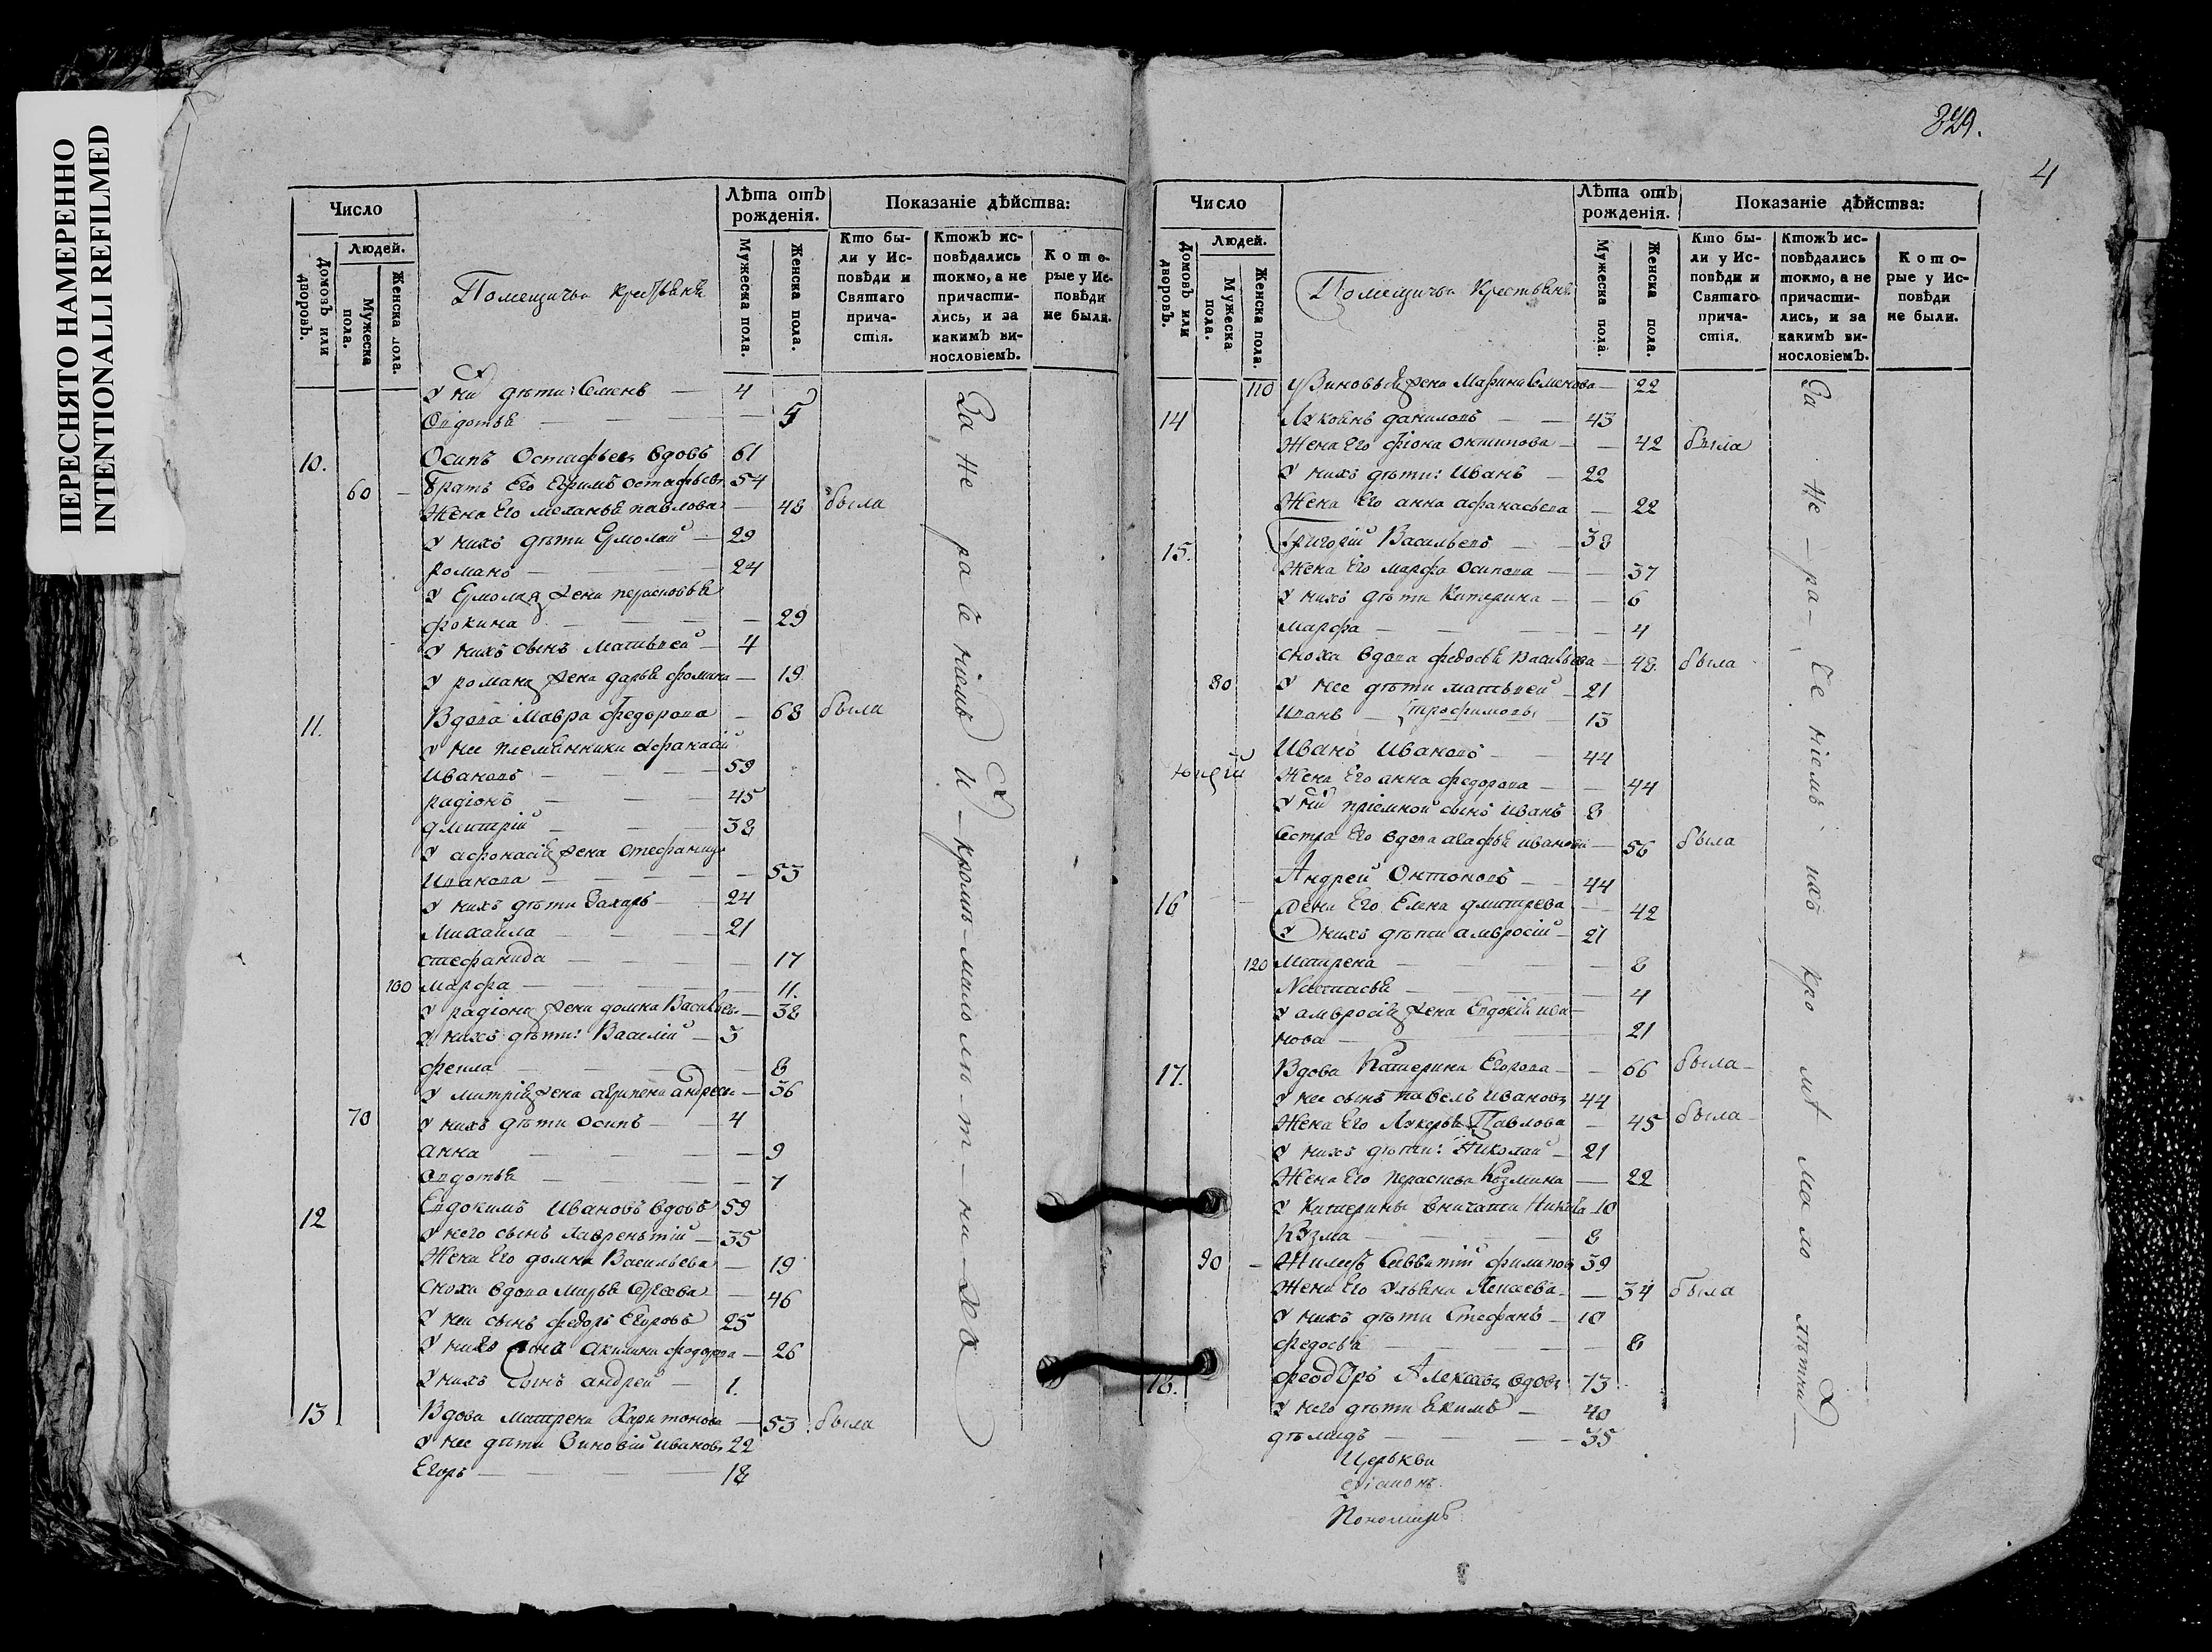 ПЕРЕСНЯТО НАМЕРЕННО
INTENTIONALLI REFILMED
829.
4
Число
Людей.
Домовъ или дворовъ.
Мужеска пола.
Женска пола.
Помещичьи крестьяне
Лѣта отъ рожденія.
Мужеска пола.
Женска пола.
Показаніе дѣйства:
Кто были у Исповѣди и Святаго причастія.
Ктожъ исповѣдались токмо, а не причастились, и за какимъ винословіемъ.
Которые у Исповѣди не были.
У ни дѣти: Семенъ — 4
Овдотья — 5
10. Осипъ Остафьевъ вдовъ 61
60 — Братъ Его Ефимъ остафьевъ 54
Жена Его меланья павлова — 48 была
У нихъ дѣти Ермолай — 29
романъ — 24
У Ермолая жена перасковья
фокина — 29
У нихъ сынъ матвѣей — 4
У романа жена дарья фомина — 19
11. Вдова Мавра федорова — 68 была
У нее племянники афанасий
Ивановъ — 59
радіонъ — 45
дмитрій — 38
У афонасія жена стефанида
Иванова — 53
У нихъ дѣти Захаръ — 24
Михайла — 21
стефанида — 17
100 марфа — 11.
У радіона жена домна Васильев. — 38
У нихъ дѣти: Василій — 3
фекла — 8
У митрія жена агрипена андреев. — 36
70 У нихъ дѣти осипъ — 4
анна — 9
Овдотья — 7
12 Евдокимъ Ивановъ вдовъ 59
У него сынъ Лаврентій — 35
Жена Его домна Васильева — 19
сноха вдова марья Сергеева — 46
У неи сынъ федоръ Егоровъ 25
У него жена акилина федорова — 26
У нихъ сынъ андрей — 1.
13 Вдова матрена Харитонова — 53 была
У нее дѣти Зиновій Ивановъ 22
Егоръ — 18
За не ра де ніемъ И — кромѣ — мало лѣ — т — ни — хъ
Число
Людей.
Домовъ или дворовъ.
Мужеска пола.
Женска пола.
Помещичьи крестьяне
Лѣта отъ рожденія.
Мужеска пола.
Женска пола.
Показаніе дѣйства:
Кто были у Исповѣди и Святаго причастія.
Ктожъ исповѣдались токмо, а не причастились, и за какимъ винословіемъ.
Которые у Исповѣди не были.
110 У Зиновья жена Марина Семенова — 22
14 Лукоянъ даниловъ — 43
Жена Его фіона онтипова — 42 была
У нихъ дѣти: Иванъ — 22
Жена Его анна афанасьева — 22
15. Григорій Васильевъ — 38
Жена Его марфа Осипова — 37
У нихъ дѣти Катерина — 6
марфа — 4
сноха вдова федосья Васильева — 48 была
80 У нее дѣти матвѣей — 21
Иванъ — трофимовы — 13
Иванъ Ивановъ — 44
Жена Его анна федорова — 44
У ни пріемной сынъ Иванъ 8
Сестра Его вдова агафья иванова — 56 была
Андрей Онтоновъ — 44
16 Жена Его Елена дмитрева — 42
У нихъ дѣти амвросій — 21
120 Матрена — 8
Настасья — 4
У амвросія жена Евдокія ива-
нова — 21
17. Вдова Катерина Егорова — 66 была
У нее сынъ павелъ Ивановъ 44
Жена Его Лукерья Павлова — 45 была
У нихъ дѣти: Николай — 21
Жена Его перасковья Козмина — 22
У Катерины внучата Никита 10
Козма — 8
90 — Жилецъ Савватій филиповъ 39
Жена Его Ульяна — 34 была
У нихъ дѣти Стефанъ — 10
федосья — 8
18. феодоръ Алексеевъ вдовъ 73
У него дѣти Екимъ — 40
— 35
Церькви
Пономарь
За не — ра — де ніемъ кро мѣ ма ло лѣтни